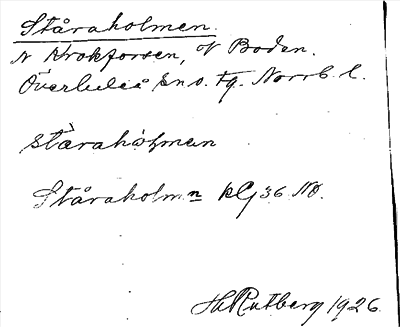 Ståraholmen.
N Krokforsen, V Boden.
Överluleå sn o. tg. Norrb. l.
ståraholmen
Ståraholmn kG 36 NO.
H Rutberg 1926